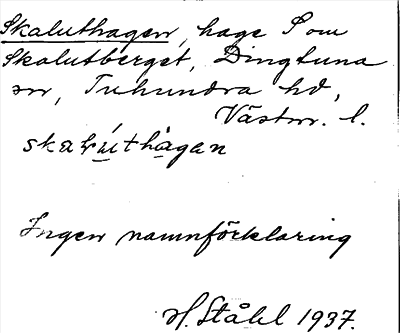 Skaluthagen, hage S om
Skalutberget, Dingtuna
sn, Tuhundra hd,
Västm. l.
skaꞎúthàgen
Ingen namnförklaring
H. Ståhl 1937.